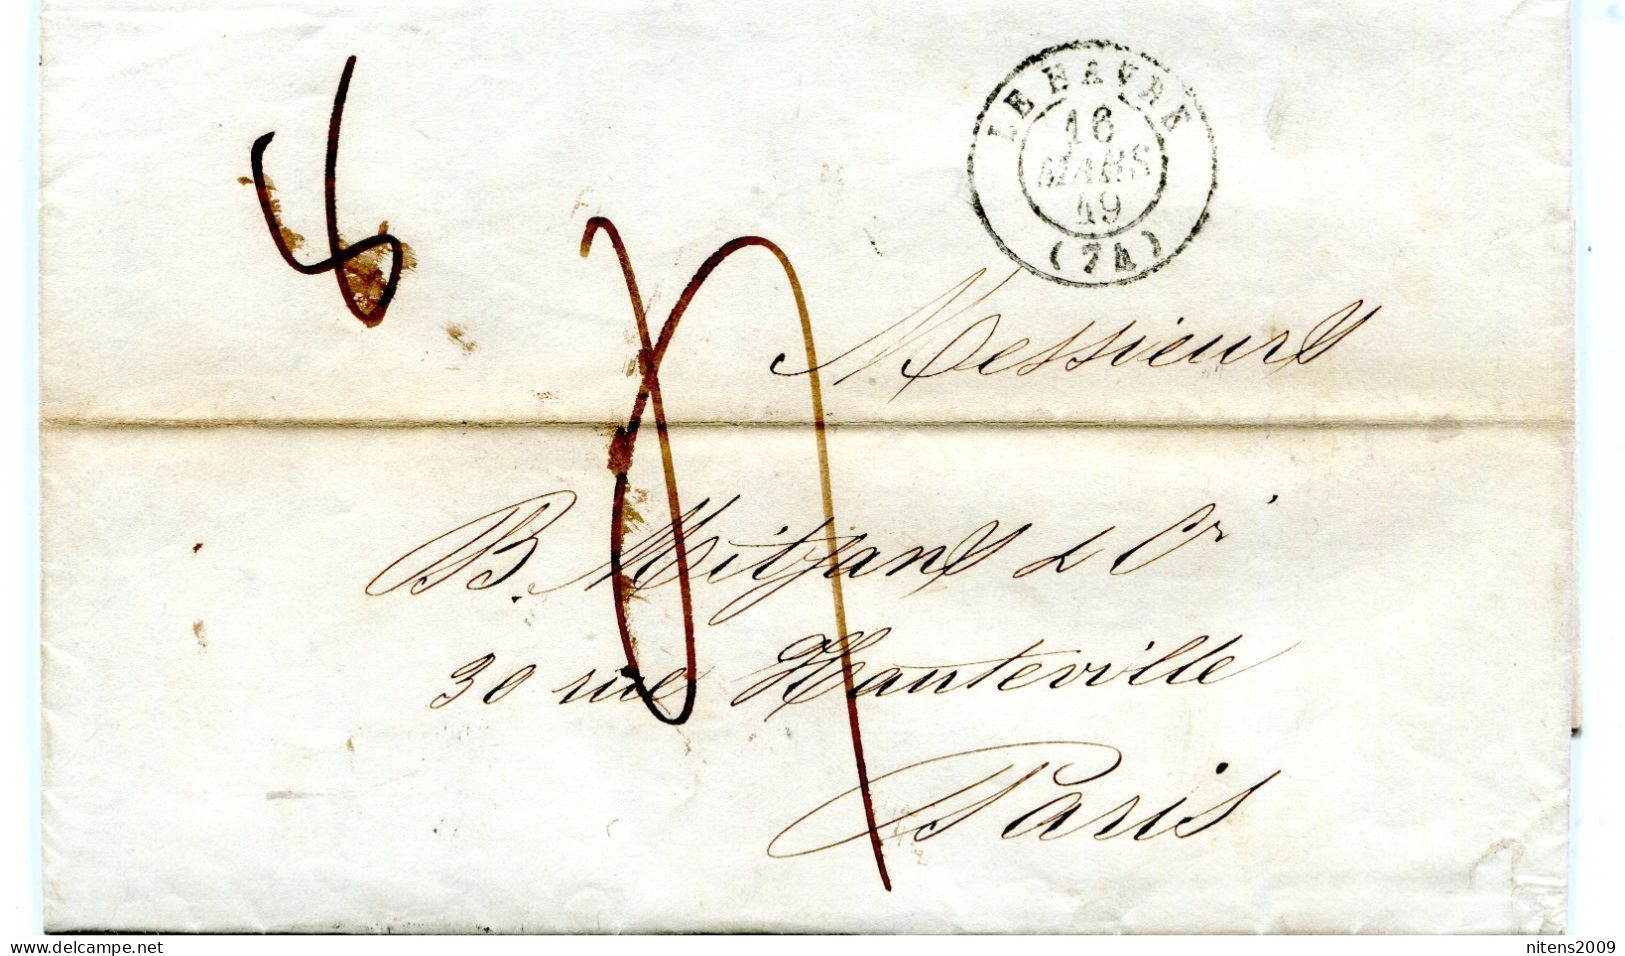 LE HAVRE
16
MARS
49
(74)
Messieurs
B. Mitjans & Cie
30 rue Hauteville
Paris
www.delcampe.net
nitens2009